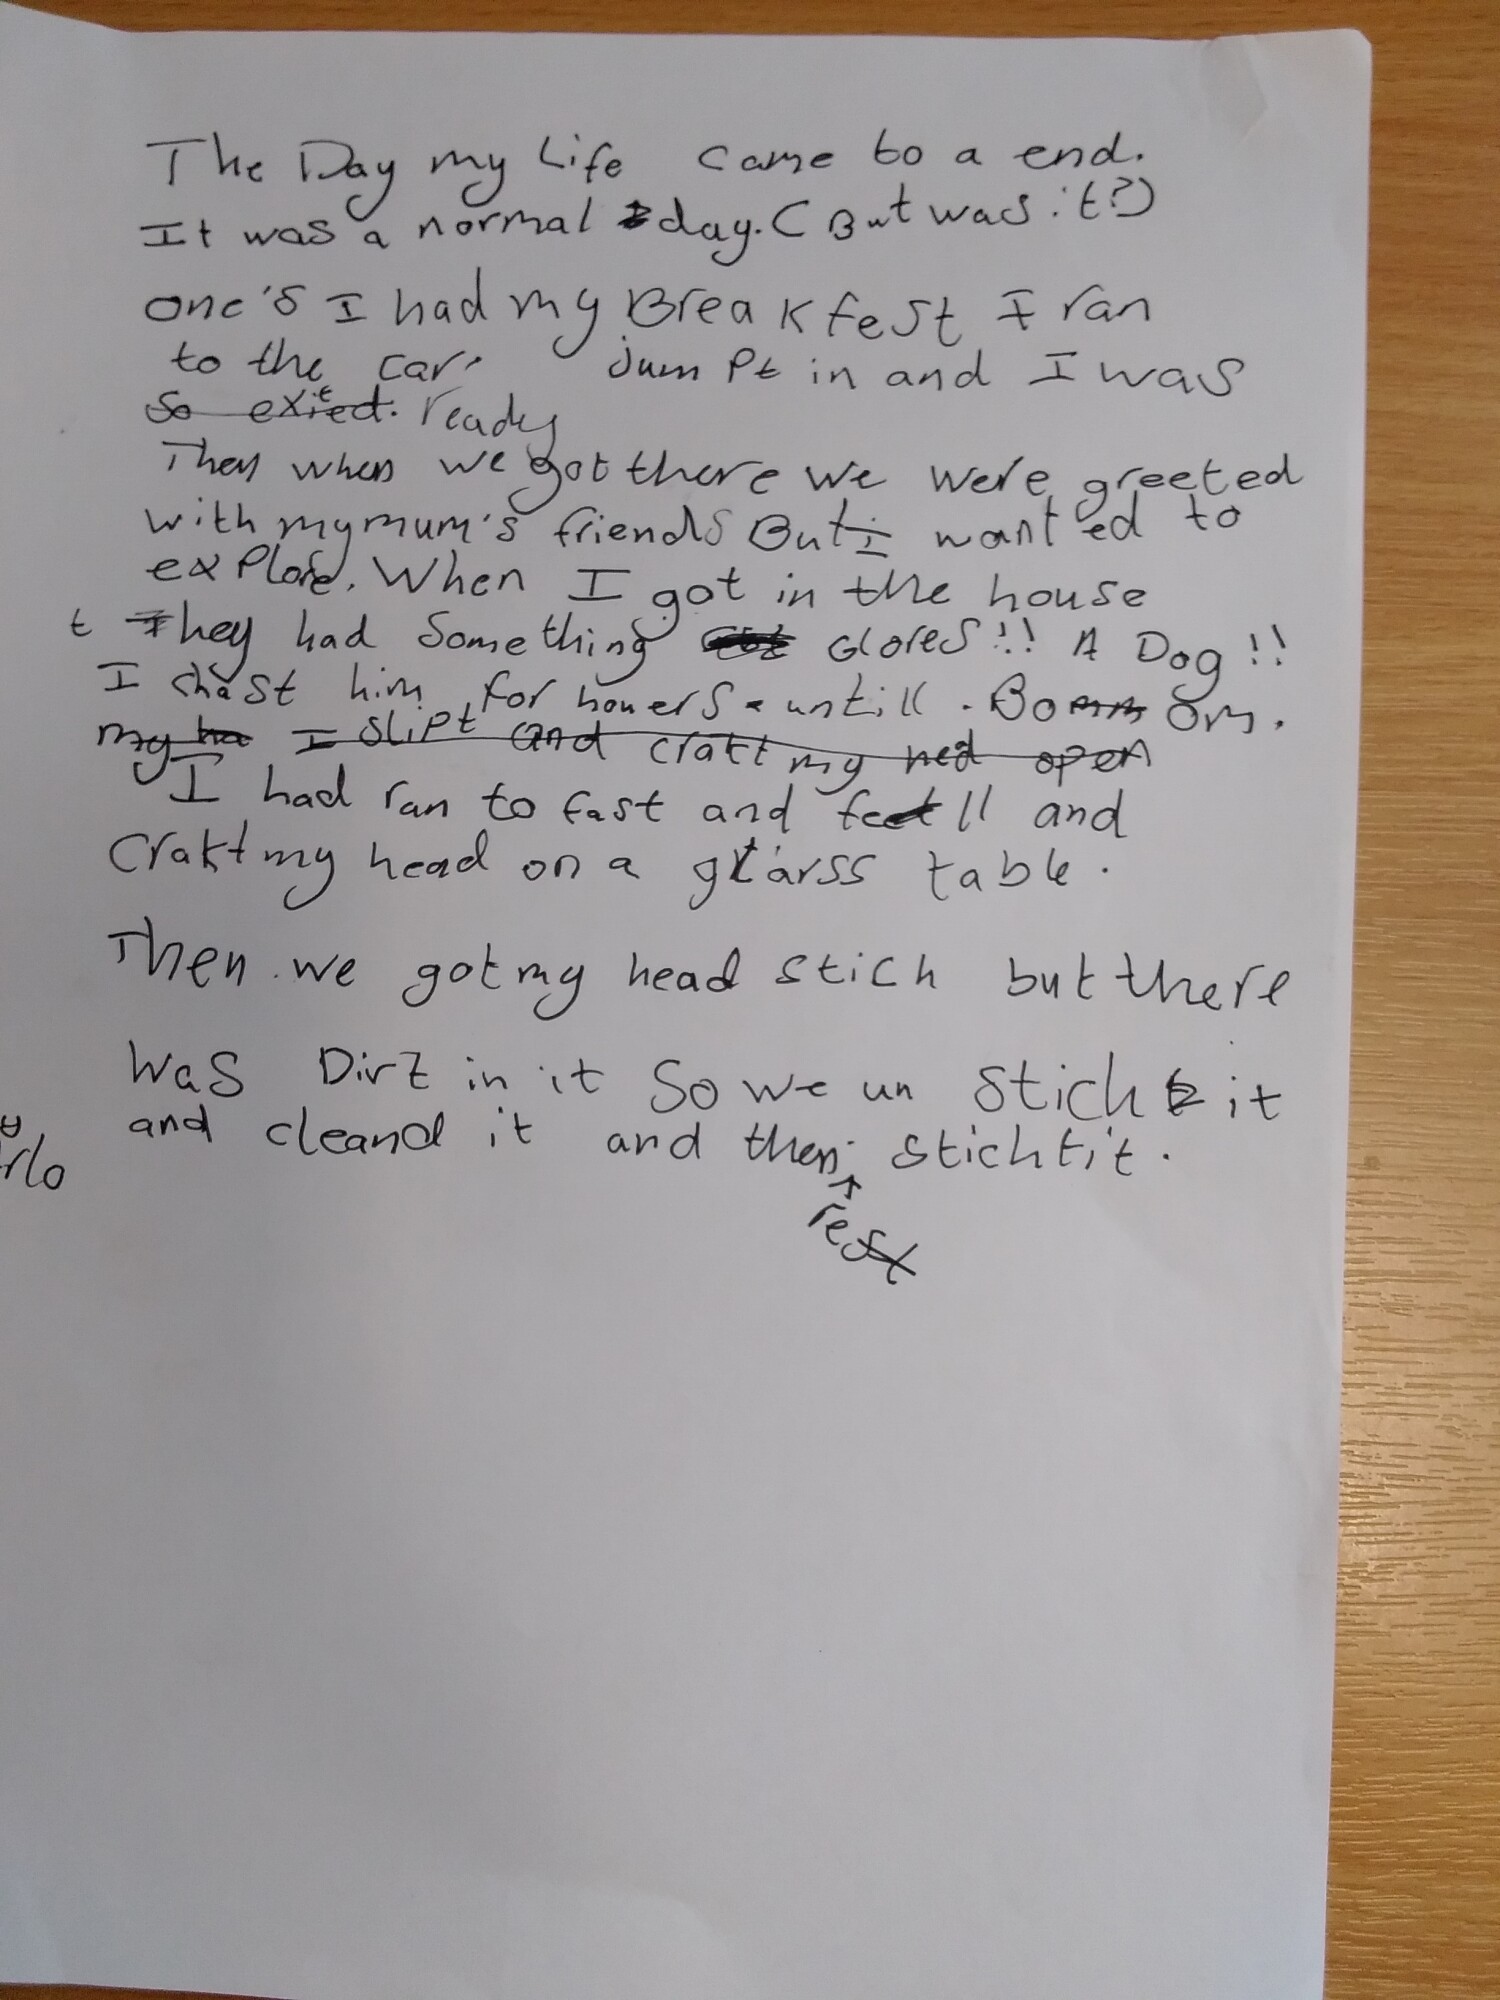 The Day my Life came to a end.
It was a normal day. (But was it?)
one's I had my Breakfest I ran
to the car. Jumpt in and I was
so exited. ready
Then when we got there we were greeted
with my mum's friends But I wanted to
explore. When I got in the house
they had something Glores!! A Dog!!
I chast him for houers untill. Bomm om.
my ha I slipt and crakt my hed open
I had ran to fast and fell and
Crakt my head on a glarss table.
Then we got my head stich but there
was Dirt in it So we un stich it
and cleand it and then sticht it.
rest
rlo